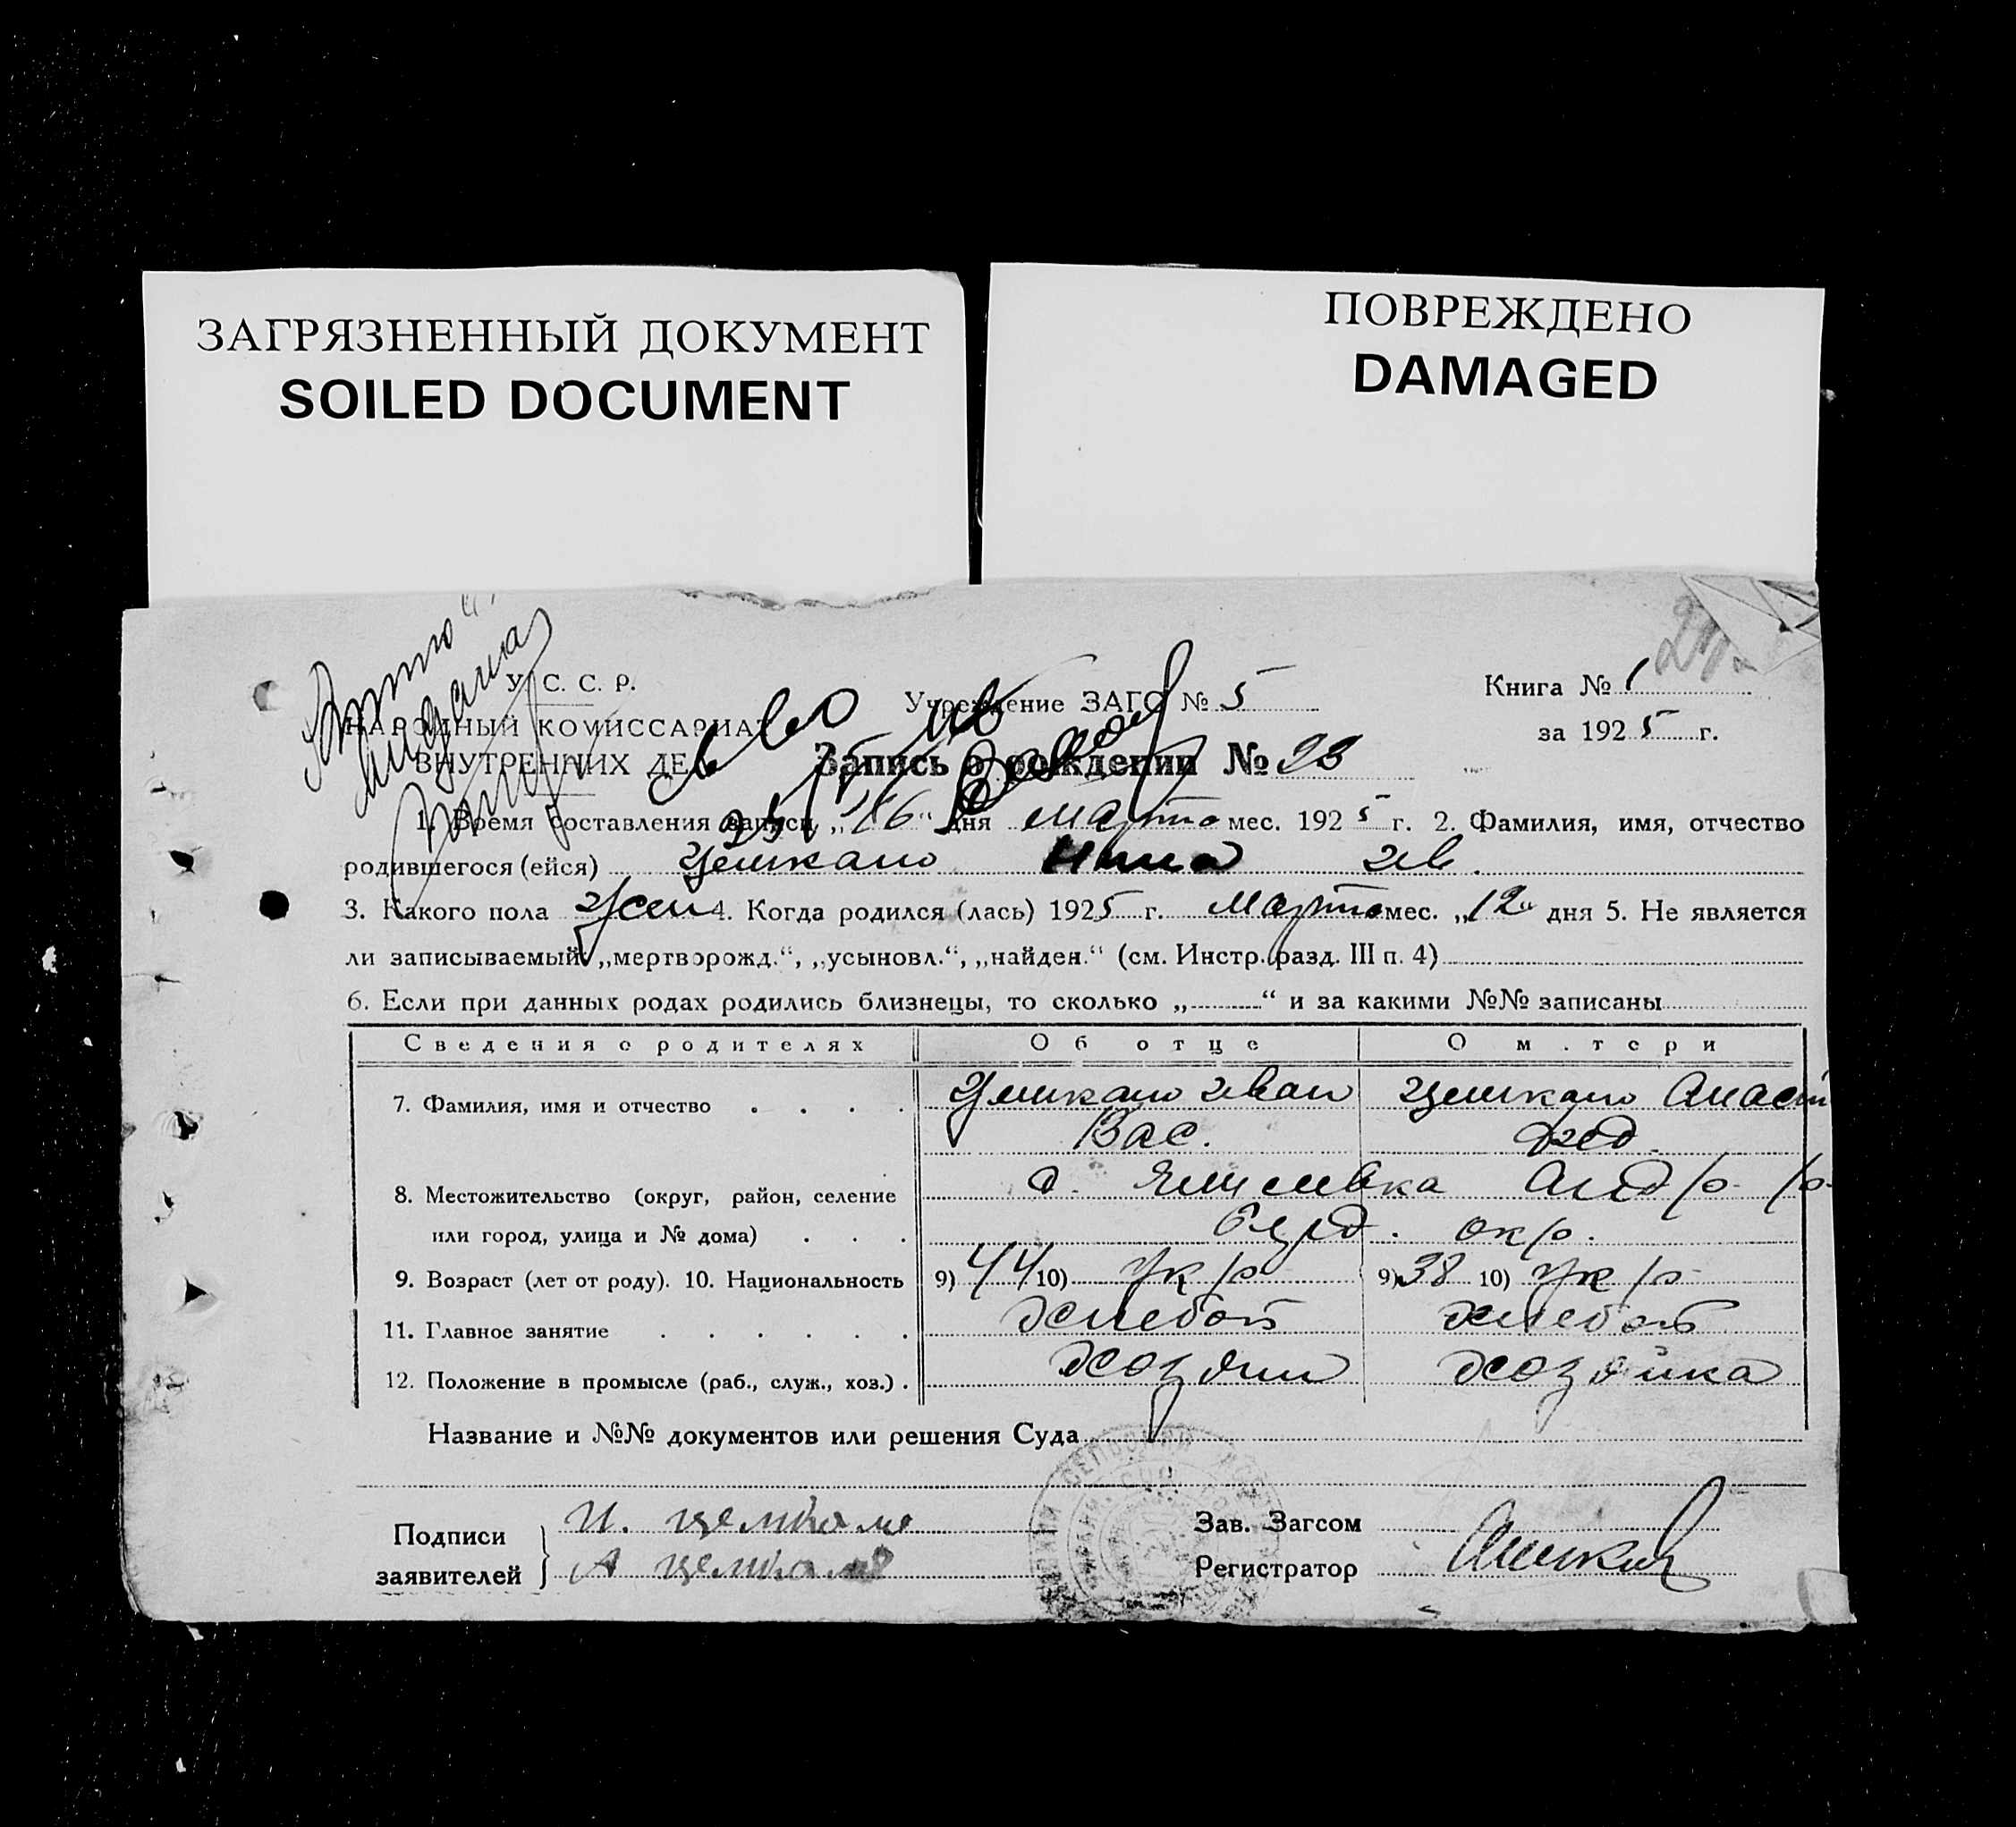 ЗАГРЯЗНЕННЫЙ ДОКУМЕНТ
SOILED DOCUMENT
ПОВРЕЖДЕНО
DAMAGED
У. С. С. Р.
НАРОДНЫЙ КОМИССАРИАТ
ВНУТРЕННИХ ДЕЛ
Учреждение ЗАГС № 5
Книга № 1
за 1925 г.
Запись о рождении № 23
1. Время составления записи „16“ дня марта мес. 1925 г. 2. Фамилия, имя, отчество
родившегося (ейся) Цемкало Нина Ив.
3. Какого пола жен 4. Когда родился (лась) 1925 г. Марта мес. „12“ дня 5. Не является
ли записываемый: „мертворожд.“, „усыновл.“, „найден.“ (см. Инстр. разд. III п. 4)
6. Если при данных родах родились близнецы, то сколько „ “ и за какими №№ записаны
Сведения о родителях Об отце О матери
7. Фамилия, имя и отчество . . . . Цемкало Иван Цемкало Анаст
Вас.
8. Местожительство (округ, район, селение с.
или город, улица и № дома) . . . окр.
9. Возраст (лет от роду). 10. Национальность 9) 44 10) Укр 9) 38 10) Укр
11. Главное занятие . . . . . . Хлебоп Хлебоп
12. Положение в промысле (раб., служ., хоз.) . Хозяин Хозяйка
Название и №№ документов или решения Суда
Подписи
заявителей
И. Цемкало
А Цемкало
Зав. Загсом
Регистратор